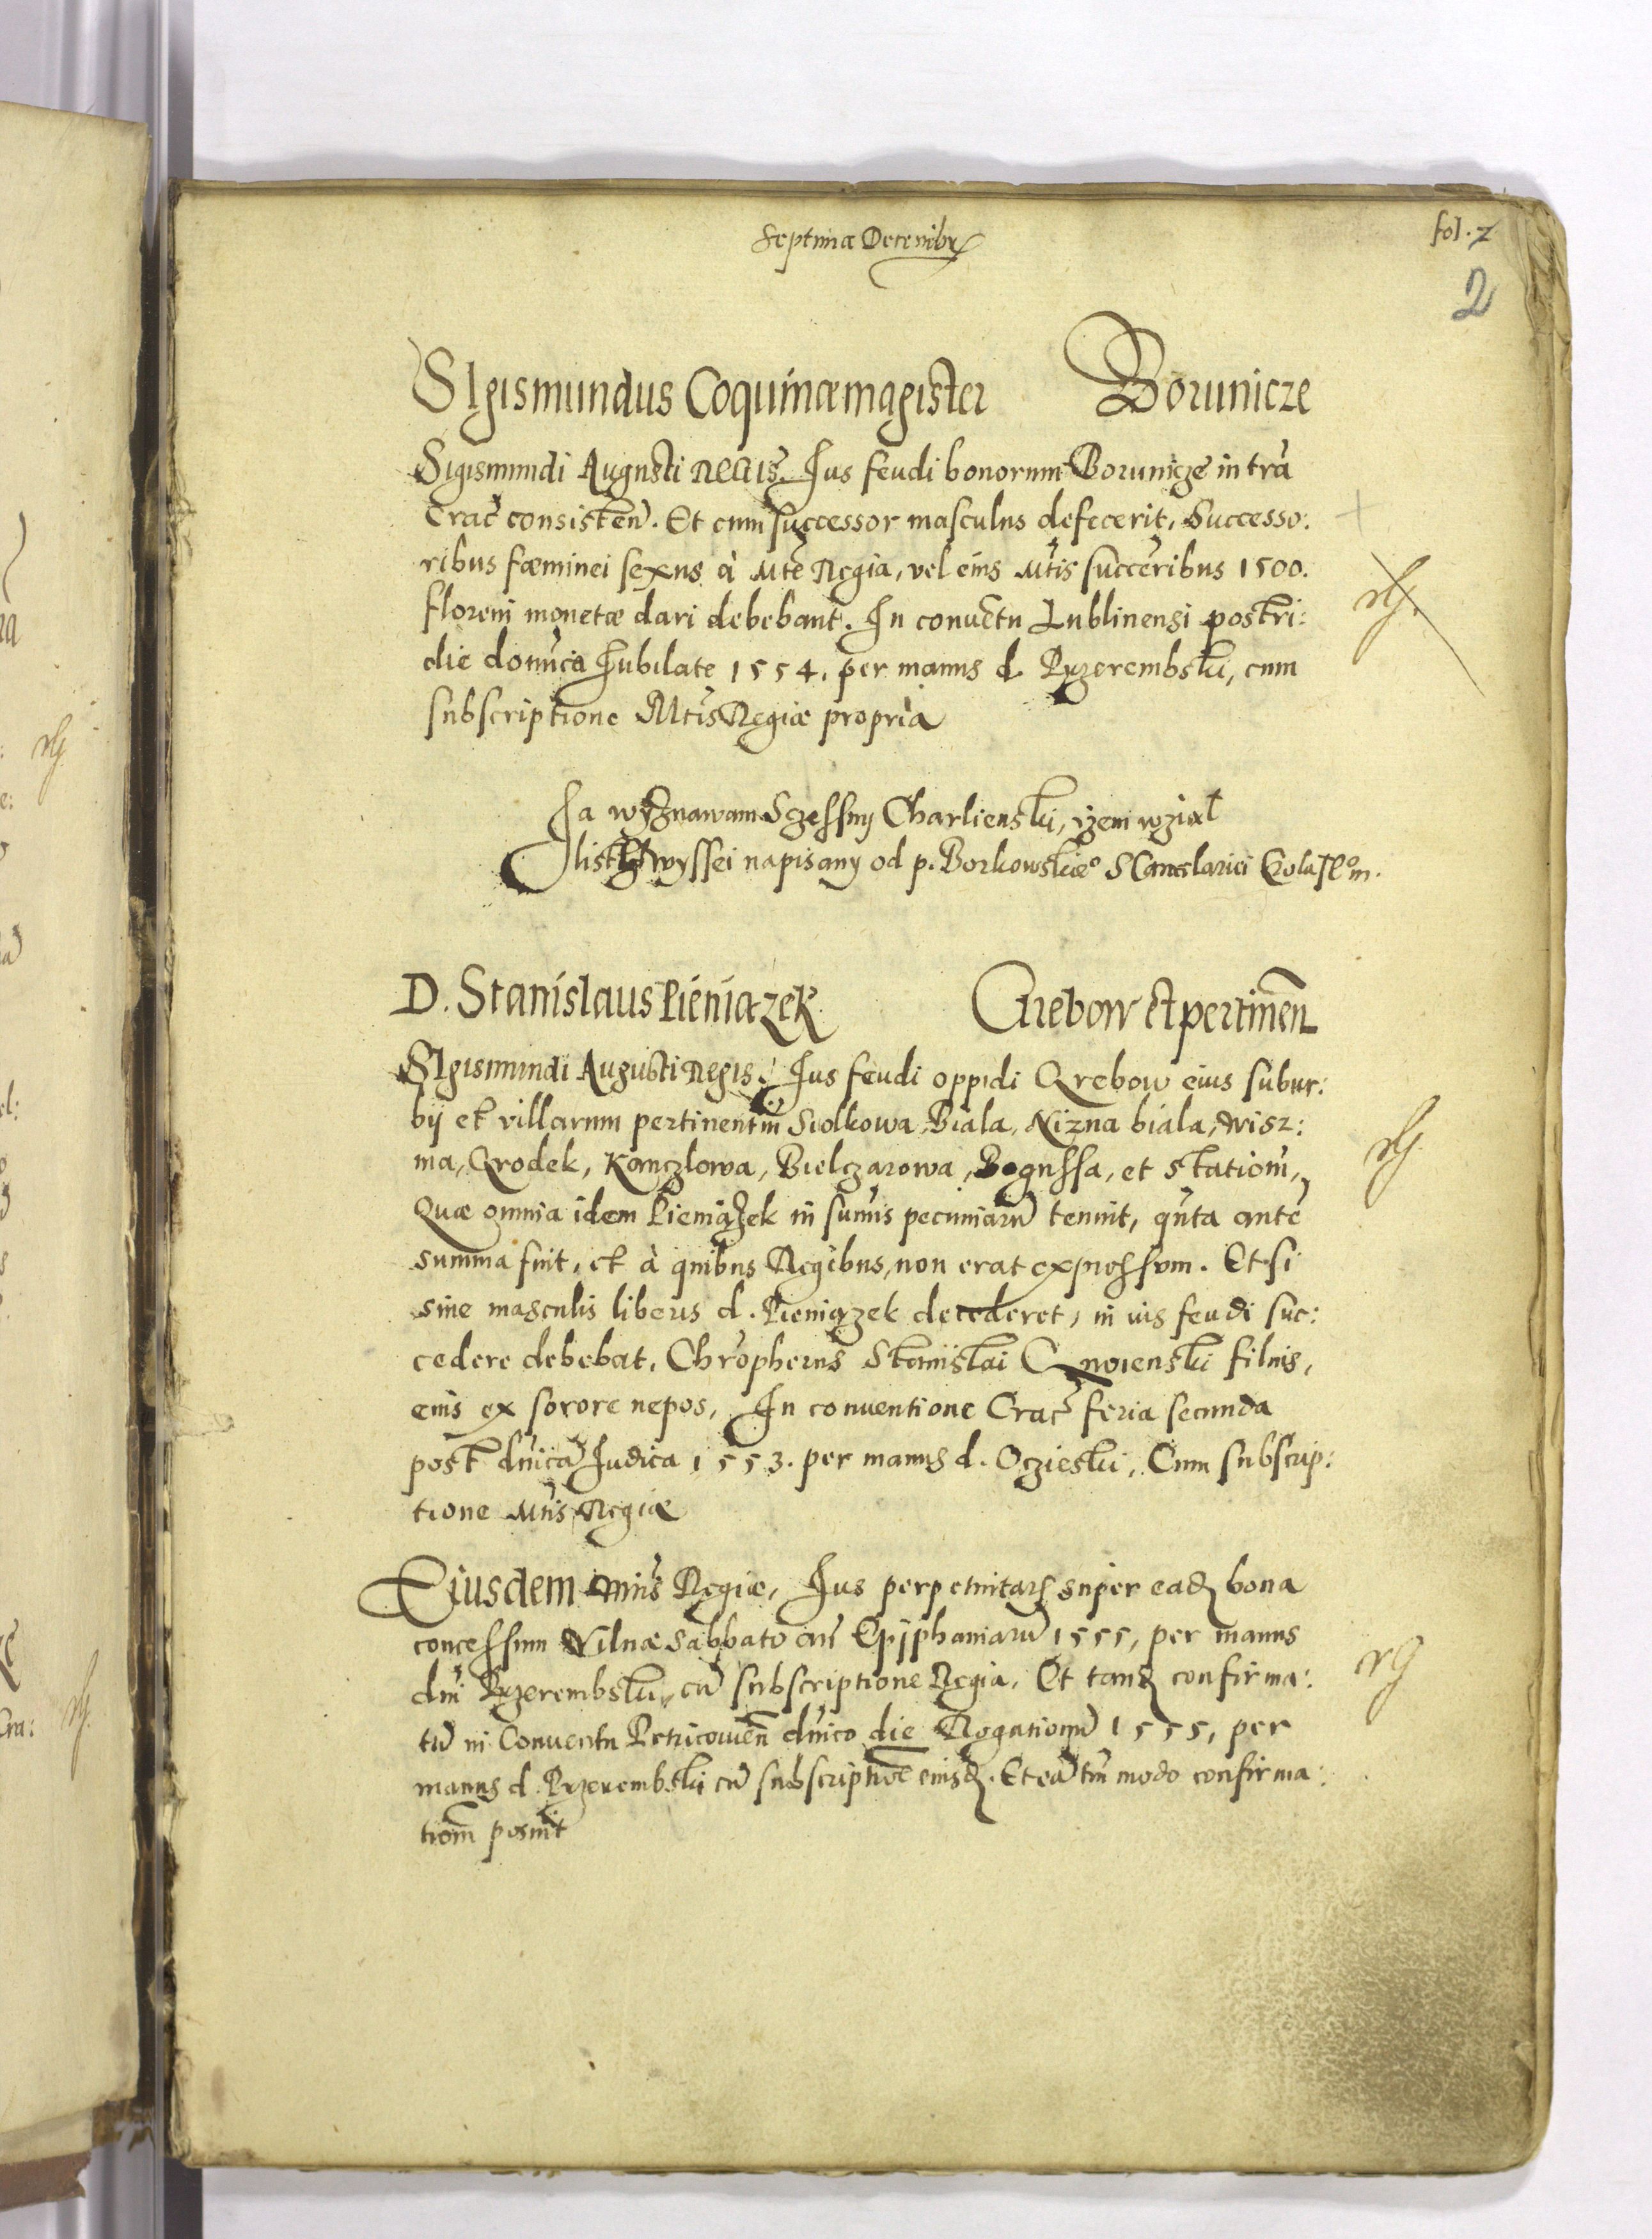 Septima Decembr
fol. 2
2
SIgismundus Coquinæmagister Borunicze
Sigismundi Augusti REGIS. Jus feudi bonorum Borunicze in tra
Crac consisten. Et cum successor masculus defecerit, Successo:
ribus fœminei sexus à Mte Regia, vel eius Mtis succeribus 1500.
floreni monetæ dari debebant. In conuetu Lublinensi postri:
die domica Jubilate 1554. per manus d. Przerembski, cum
subscriptione Mtis Regiæ propria
Ja wyznawam Sczessny Charlienski, yzem wzial
list wyssei napisany od p. Borkowskieo
D. Stanislaus Pieniazek Grebow et pertinen
SIgismundi Augusti Regis. Jus feudi oppidi Grebow eius subur:
bij et villarum pertinentiu Siolkowa, Biala, Nizna biala, wisz:
ma, Grodek, Kanczlowa, Bielczarowa, Bogussa, et station,
Quæ omnia idem Pieniązek in sumis pecuniaru tenuit, quta ante
summa fuit, et à quibus Regibus, non erat expressum. Et si
sine masculis liberis d. Pieniązek decederet, in ius feudi suc:
cedere debebat, Chropherus Stanislai filius,
eius ex sorore nepos, In conuentione Crac feria secunda
post dnica Judica 1553. per manus d. Oczieski, Cum subscrip:
tione Mtis Regiæ
Eiusdem Mtis Regiæ, Jus perpetuitatis super eadem bona
concessum Vilnæ sabbato an Epiphaniaru 1555, per manus
dni Przerembski, cu subscriptione Regia. Et tandem confirma:
tu in Conuentu Petricouien dnico die Rogationu 1555, per
manus d. Przerembski cu subscriptione eiusdem. Et ea tm modo confirma:
tiom posuit